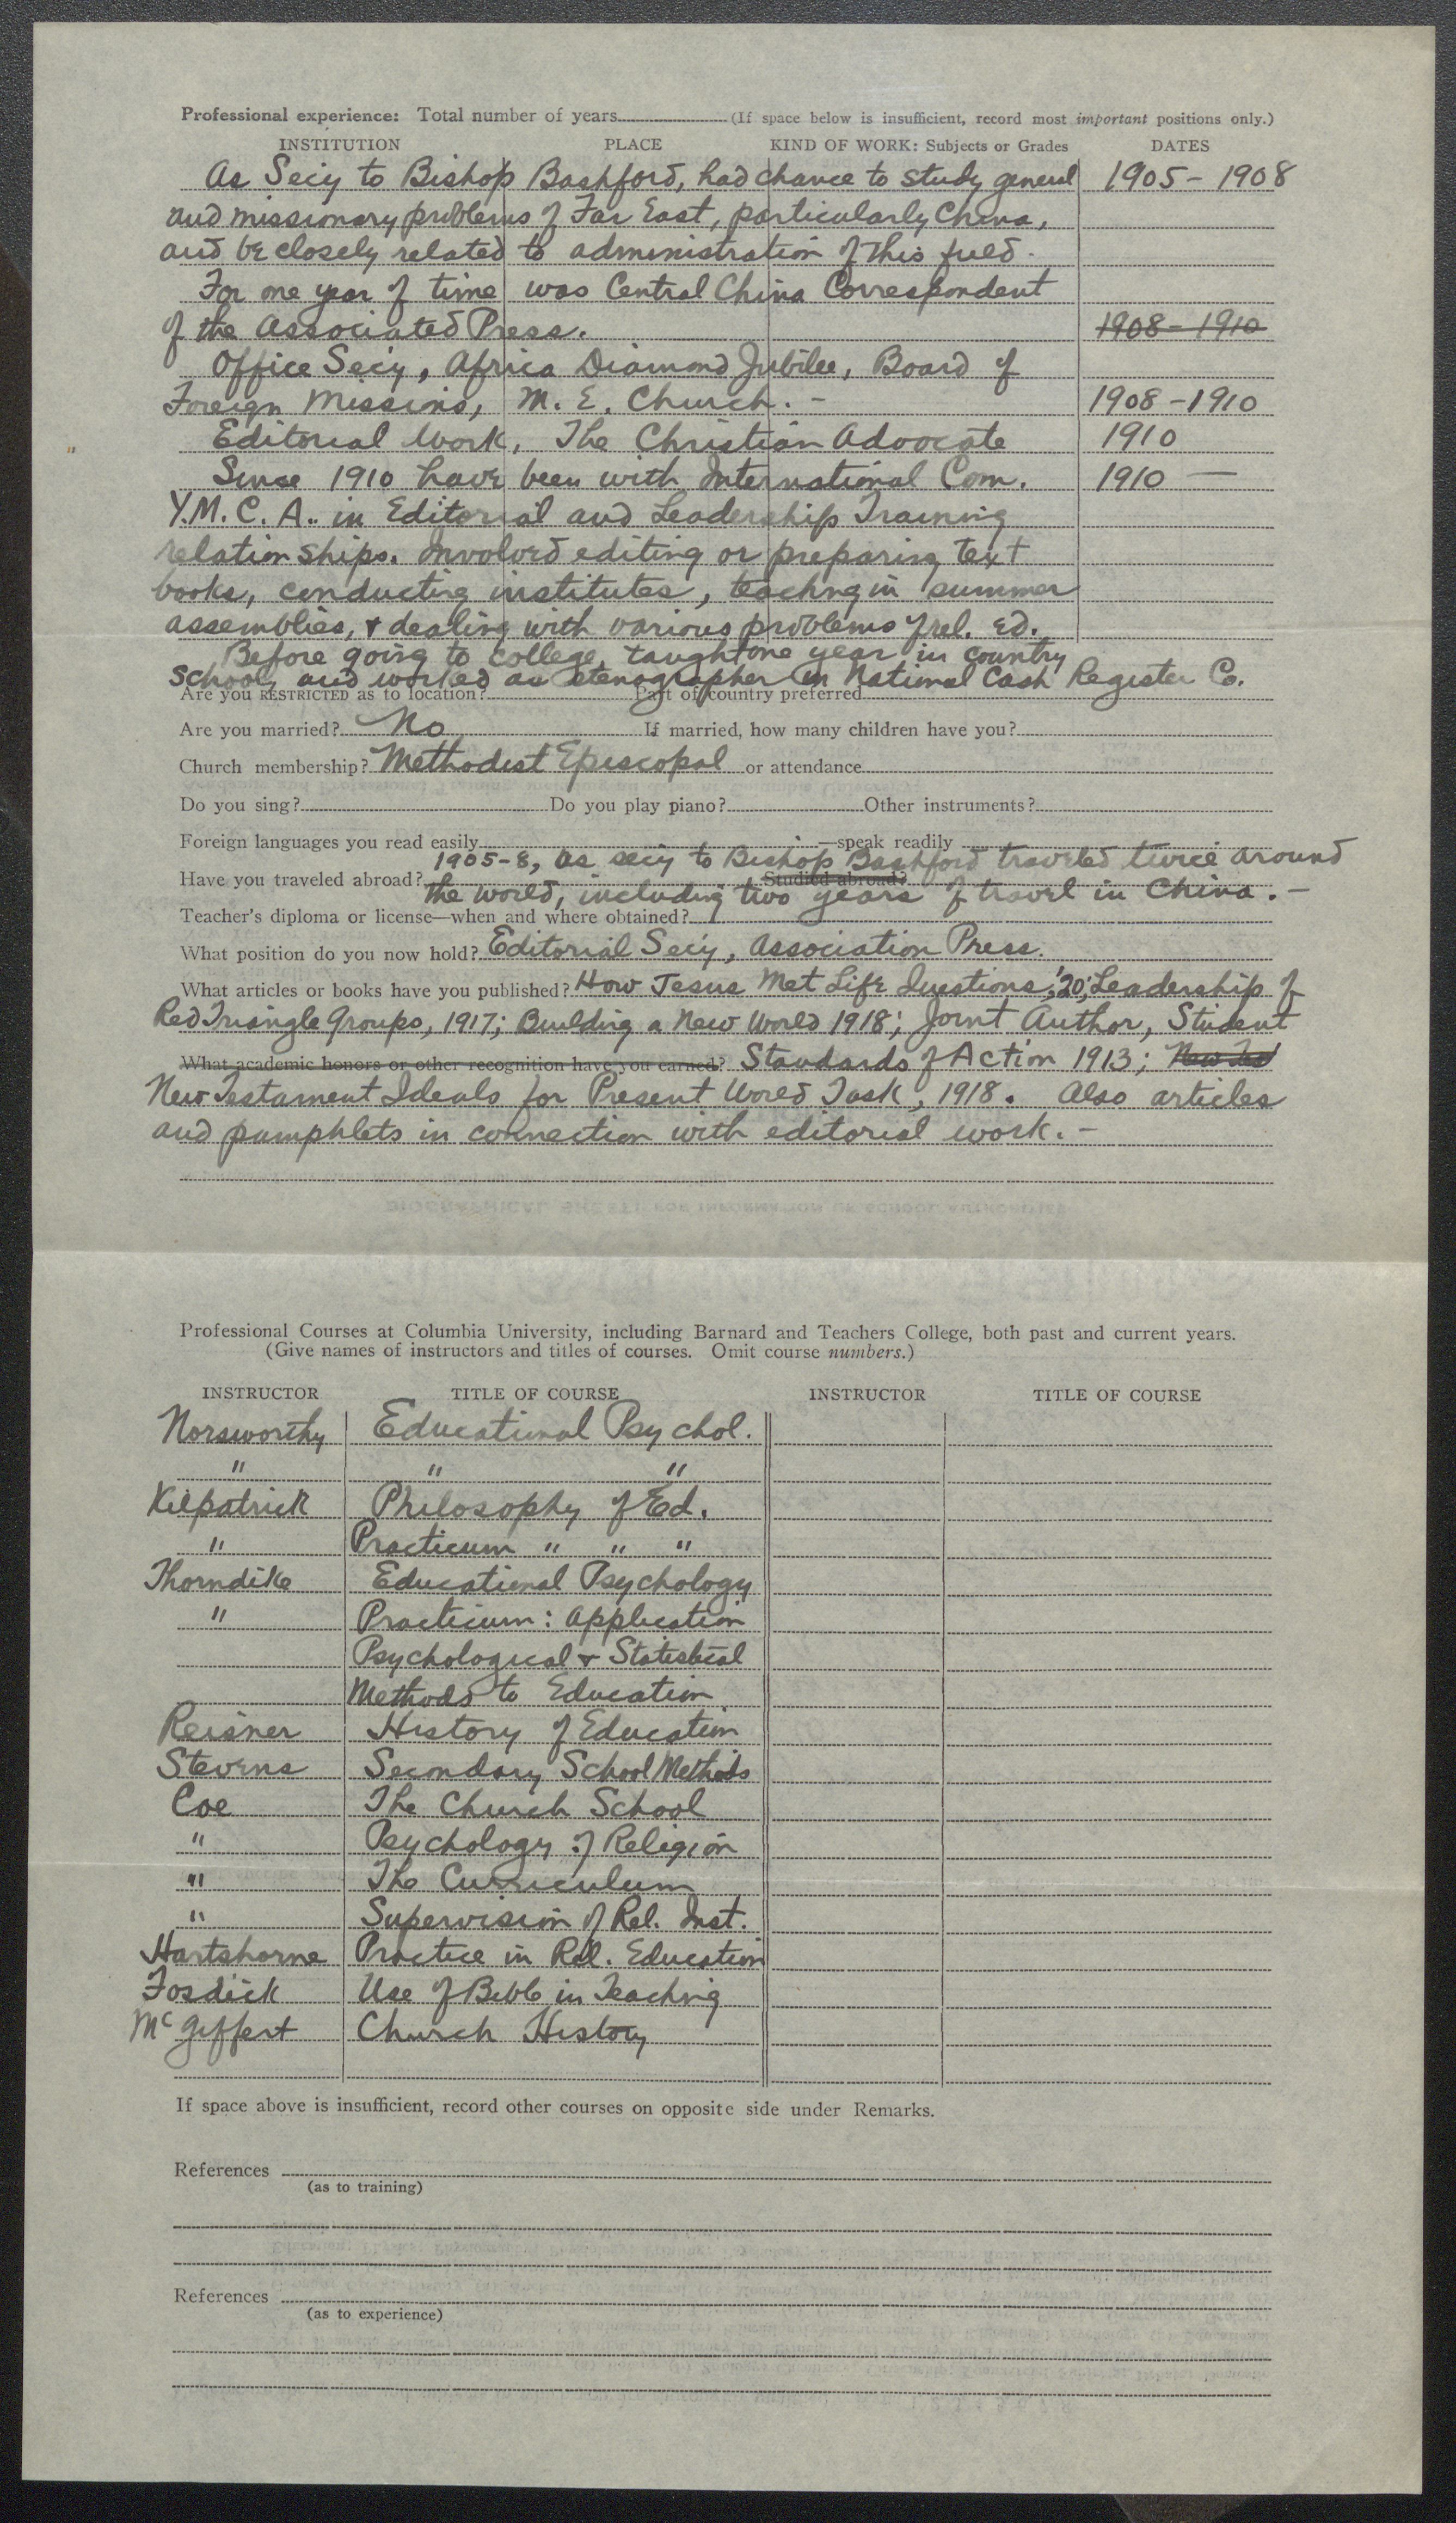 Professional experience: Total number of years (If space below is insufficient, record most important positions only.)
INSTITUTION PLACE KIND OF WORK: Subjects or Grades DATES
As Secy to Bishop Bashford, had chance to study general 1905 - 1908
and missionary problems of Far East, particularly China,
and be closely related to administration of this field.
For one year of time was Central China Correspondent
of the Associated Press. 1908 - 1910
Office Secy, Africa Diamond Jubilee, Board of
Foreign Missions, M. E. Church. - 1908 - 1910
Editorial Work, The Christian Advocate 1910
Since 1910 have been with International Com. 1910 —
Y.M.C.A. in Editorial and Leadership Training
relationships. Involved editing or preparing text
books, conducting institutes, teaching in summer
assemblies, & dealing with various problems of rel. ed.
Before going to college, taught one year in country
school, and worked as stenographer in National Cash Register Co.
Are you RESTRICTED as to location? Part of country preferred
Are you married? No If married, how many children have you?
Church membership? Methodist Episcopal or attendance
Do you sing? Do you play piano? Other instruments?
Foreign languages you read easily —speak readily
1905-8, as secy to Bishop Bashford traveled twice around
Have you traveled abroad? Studied abroad?
the world, including two years of travel in China. -
Teacher's diploma or license—when and where obtained?
What position do you now hold? Editorial Secy, Association Press.
What articles or books have you published? How Jesus Met Life Questions, '20; Leadership of
Red Triangle Groups, 1917; Building a New World 1918; Joint Author, Student
What academic honors or other recognition have you earned? Standards of Action 1913; New Tes
New Testament Ideals for Present World Task, 1918. Also articles
and pamphlets in connection with editorial work. -
Professional Courses at Columbia University, including Barnard and Teachers College, both past and current years.
(Give names of instructors and titles of courses. Omit course numbers.)
INSTRUCTOR TITLE OF COURSE INSTRUCTOR TITLE OF COURSE
Norsworthy Educational Psychol.
" " "
Kilpatrick Philosophy of Ed.
" Practicum " " "
Thorndike Educational Psychology
" Practicum: Application
Psychological & Statistical
Methods to Education
Reisner History of Education
Stevens Secondary School Methods
Coe The Church School
" Psychology of Religion
" The Curriculum
" Supervision of Rel. Inst.
Hartshorne Practice in Rel. Education
Fosdick Use of Bible in Teaching
McGiffert Church History
If space above is insufficient, record other courses on opposite side under Remarks.
References
(as to training)
References
(as to experience)